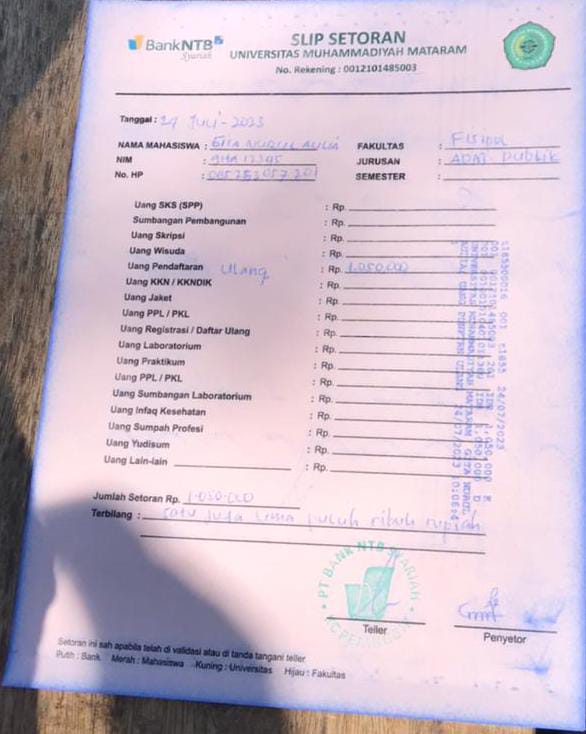 BankNTB Syariah
SLIP SETORAN
UNIVERSITAS MUHAMMADIYAH MATARAM
No. Rekening : 0012101485003
Tanggal : 24 Juli - 2023
NAMA MAHASISWA : GITA NURUL AULIA FAKULTAS : Fisipol
NIM : JURUSAN : ADM. Publik
No. HP : 085253057201 SEMESTER :
Uang SKS (SPP) : Rp.
Sumbangan Pembangunan : Rp.
Uang Skripsi : Rp.
Uang Wisuda : Rp.
Uang Pendaftaran Ulang : Rp. 1.050.000
Uang KKN / KKNDIK : Rp.
Uang Jaket : Rp.
Uang PPL / PKL : Rp.
Uang Registrasi / Daftar Ulang : Rp.
Uang Laboratorium : Rp.
Uang Praktikum : Rp.
Uang PPL / PKL : Rp.
Uang Sumbangan Laboratorium : Rp.
Uang Infaq Kesehatan : Rp.
Uang Sumpah Profesi : Rp.
Uang Yudisum : Rp.
Uang Lain-lain : Rp.
24/07/2023
UNIVERSITAS MUHAMMADIYAH MATARAM GITA NURUL
Jumlah Setoran Rp. 1.050.000
Terbilang : Satu juta lima puluh ribuh rupiah
PT BANK NTB SYARIAH
Teller
Penyetor
Setoran ini sah apabila telah di validasi atau di tanda tangani teller
Putih : Bank Merah : Mahasiswa Kuning : Universitas Hijau : Fakultas